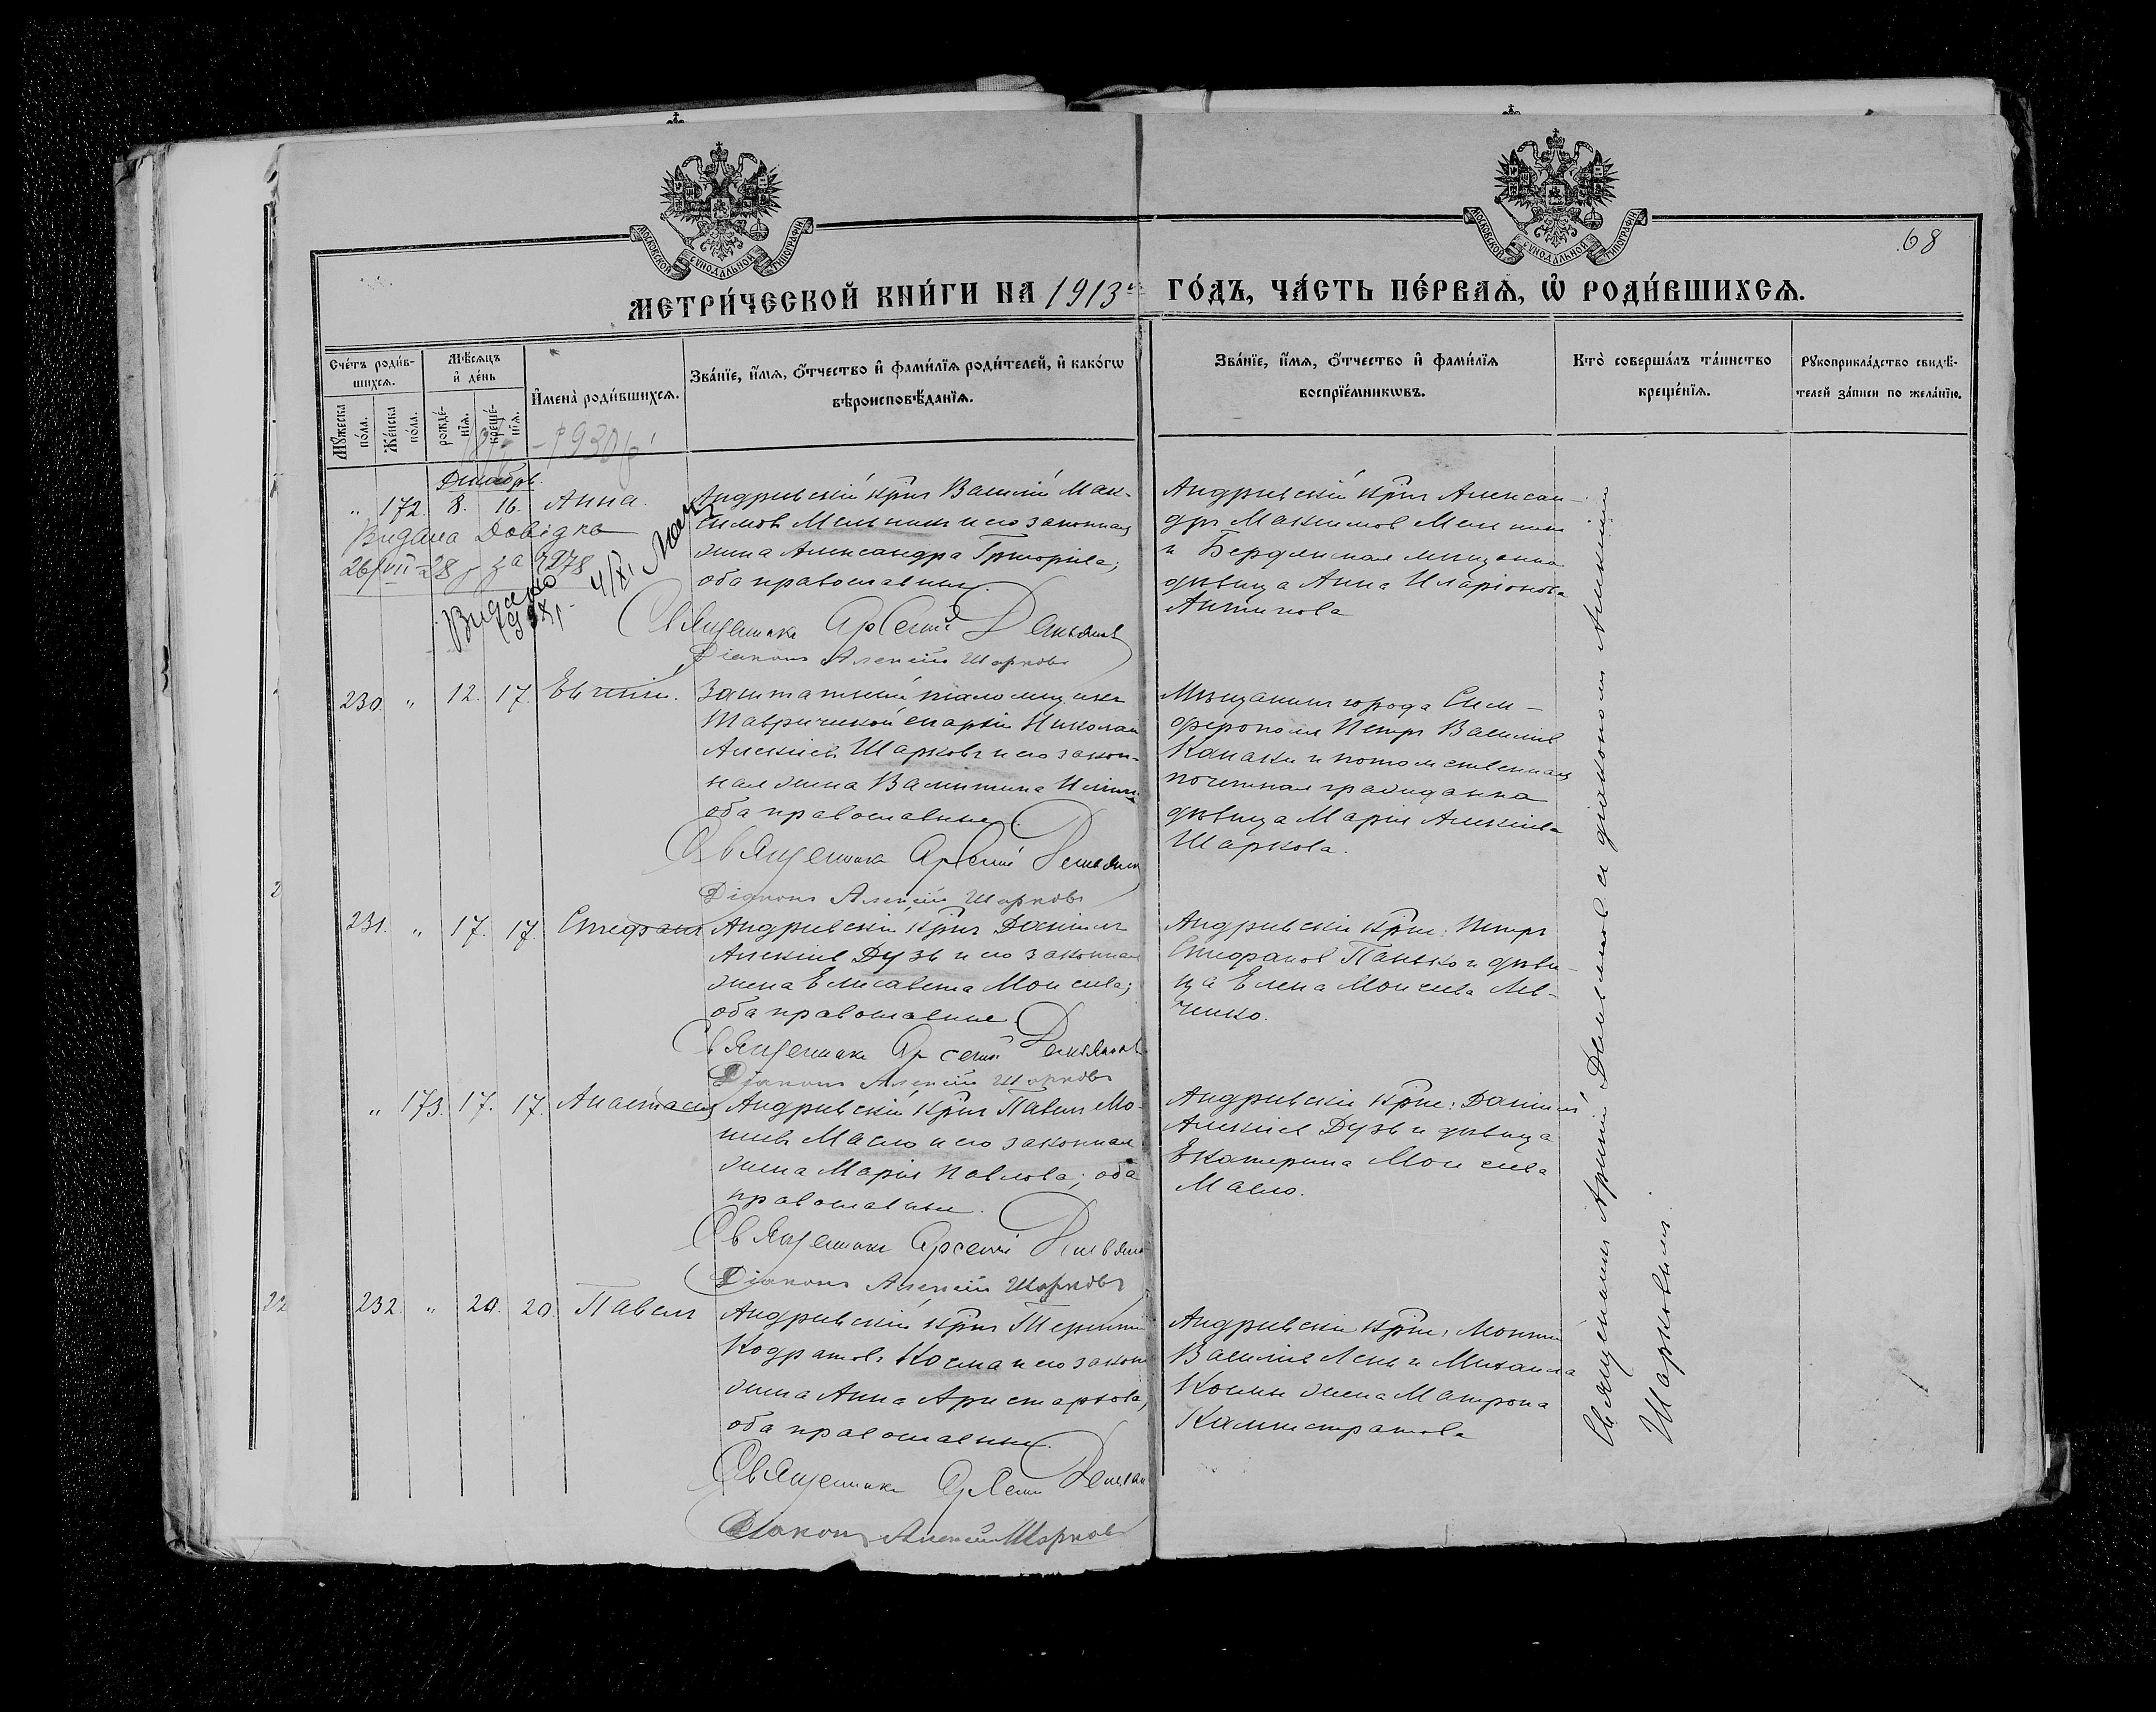 МОСКОВСКОЙ СѴНОДАЛЬНОЙ ТИПОГРАФІИ
МОСКОВСКОЙ СѴНОДАЛЬНОЙ ТИПОГРАФІИ
68
МЕТРИ́ЧЕСКОЙ КНИ́ГИ НА 1913 ГО́ДЪ, ЧА́СТЬ ПЕ́РВАѦ, Ѡ҆ РОДИ́ВШИХСѦ.
Сче́тъ роди́в-
шихсѧ.
Мꙋ́жеска по́ла.
Же́нска по́ла.
Мѣ́сѧцъ
и҆ де́нь
рожде́-
нїѧ.
креще́-
нїѧ.
И҆мена̀ роди́вшихсѧ.
Зва́нїе, и҆́мѧ, ѻ҆́тчество и҆ фами́лїѧ роди́телей, и҆ како́гѡ
вѣроисповѣ́данїѧ.
Зва́нїе, и҆́мѧ, ѻ҆́тчество и҆ фами́лїѧ
воспрїе́мникѡвъ.
Кто̀ соверша́лъ та́инство
креще́нїѧ.
Рꙋкоприкла́дство свидѣ́-
телей за́писи по жела́нїю.
Декабрь.
„ 172. 8. 16. Анна.
Андреевскій крⷭ҇т Василій Мак-
симовъ Мельникъ и его законная
жена Александра Григорьева;
оба православные.
Священникъ Арсеній Демьяновъ
Діаконъ Алексій Шарковъ
Андреевскій крⷭ҇т Алексан-
дръ Максимовъ Мельникъ
и Бердянская мещанка
девица Анна Иларіонова
Антипова
Видана Довідка
26/VII-28 р за №278
Видано
4/XI
230. „ 12. 17. Евгеній.
Заштатный псаломщикъ
Таврической епархіи Николай
Алексіевъ Шарковъ и его закон-
ная жена Валентина
оба православные.
Священникъ Арсеній Демьяновъ
Діаконъ Алексій Шарковъ
Мещанинъ города Сим-
ферополя Петръ Васильевъ
Канаки и потомственная
почетная гражданка
девица Марія Алексіева
Шаркова.
231. „ 17. 17. Стефанъ
Андреевскій крⷭ҇т Даніилъ
Алексіевъ Дузь и его законная
жена Елисавета Моисеева;
оба православные.
Священникъ Арсеній Демьяновъ
Діаконъ Алексій Шарковъ
Андреевскіе крⷭ҇т: Петръ
Стефановъ Панько и деви-
ца Елена Моисеева Лев-
ченко.
„ 173. 17. 17. Анастасія
Андреевскій крⷭ҇т Павелъ Мо-
исеевъ Масло и его законная
жена Марія Павлова; оба
православные.
Священникъ Арсеній Демьяновъ
Діаконъ Алексій Шарковъ
Андреевскіе крⷭ҇т: Даніилъ
Алексіевъ Дузь и девица
Екатерина Моисеева
Масло.
232. „ 20. 20. Павелъ
Андреевскій крⷭ҇т Терентій
Кодратовъ Косма и его законная
жена Анна Аристархова;
оба православные.
Священникъ Арсеній Демьяновъ
Діаконъ Алексій Шарковъ
Андреевскіе крⷭ҇т:
Васильевъ Лень и Михаила
Космы жена Матрона
Каллистратова
Священникъ Арсеній Демьяновъ съ діакономъ Алексіемъ
Шарковымъ.